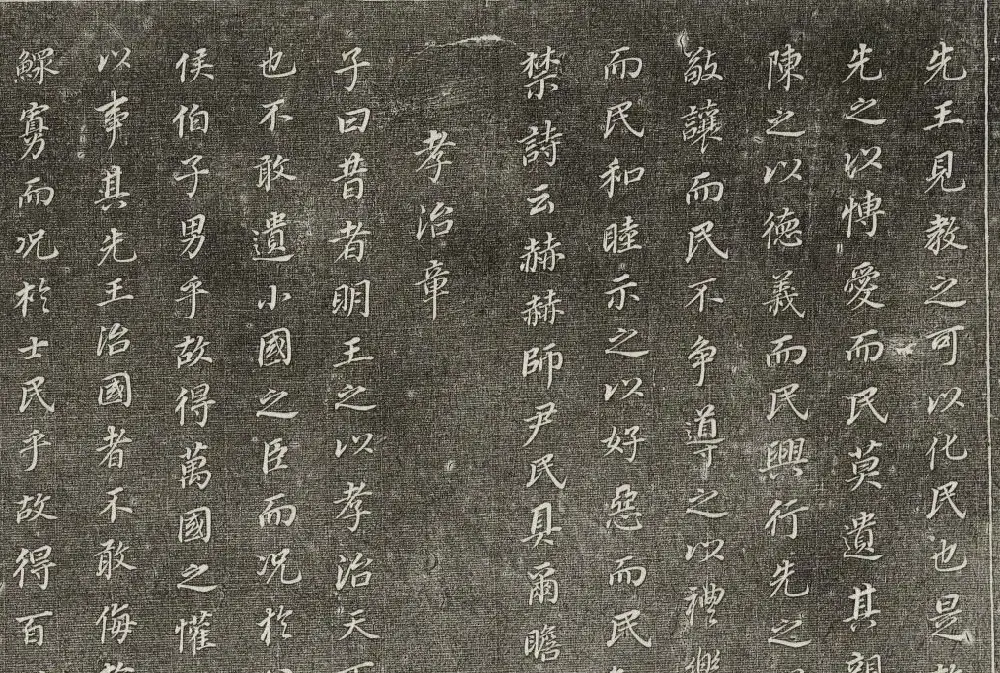 先王見教之可以化民也是
先之以愽愛而民莫遺其
陳之以德義而民興行先之
敬讓而民不争導之以禮
而民和睦示之以好惡而民
禁詩云赫赫師尹民具爾瞻
孝治章
子曰昔者明王之以孝治天
也不敢遺小國之臣而况於
侯伯子男乎故得萬國之懽
以事其先王治國者不敢侮
鰥寡而况於士民乎故得百